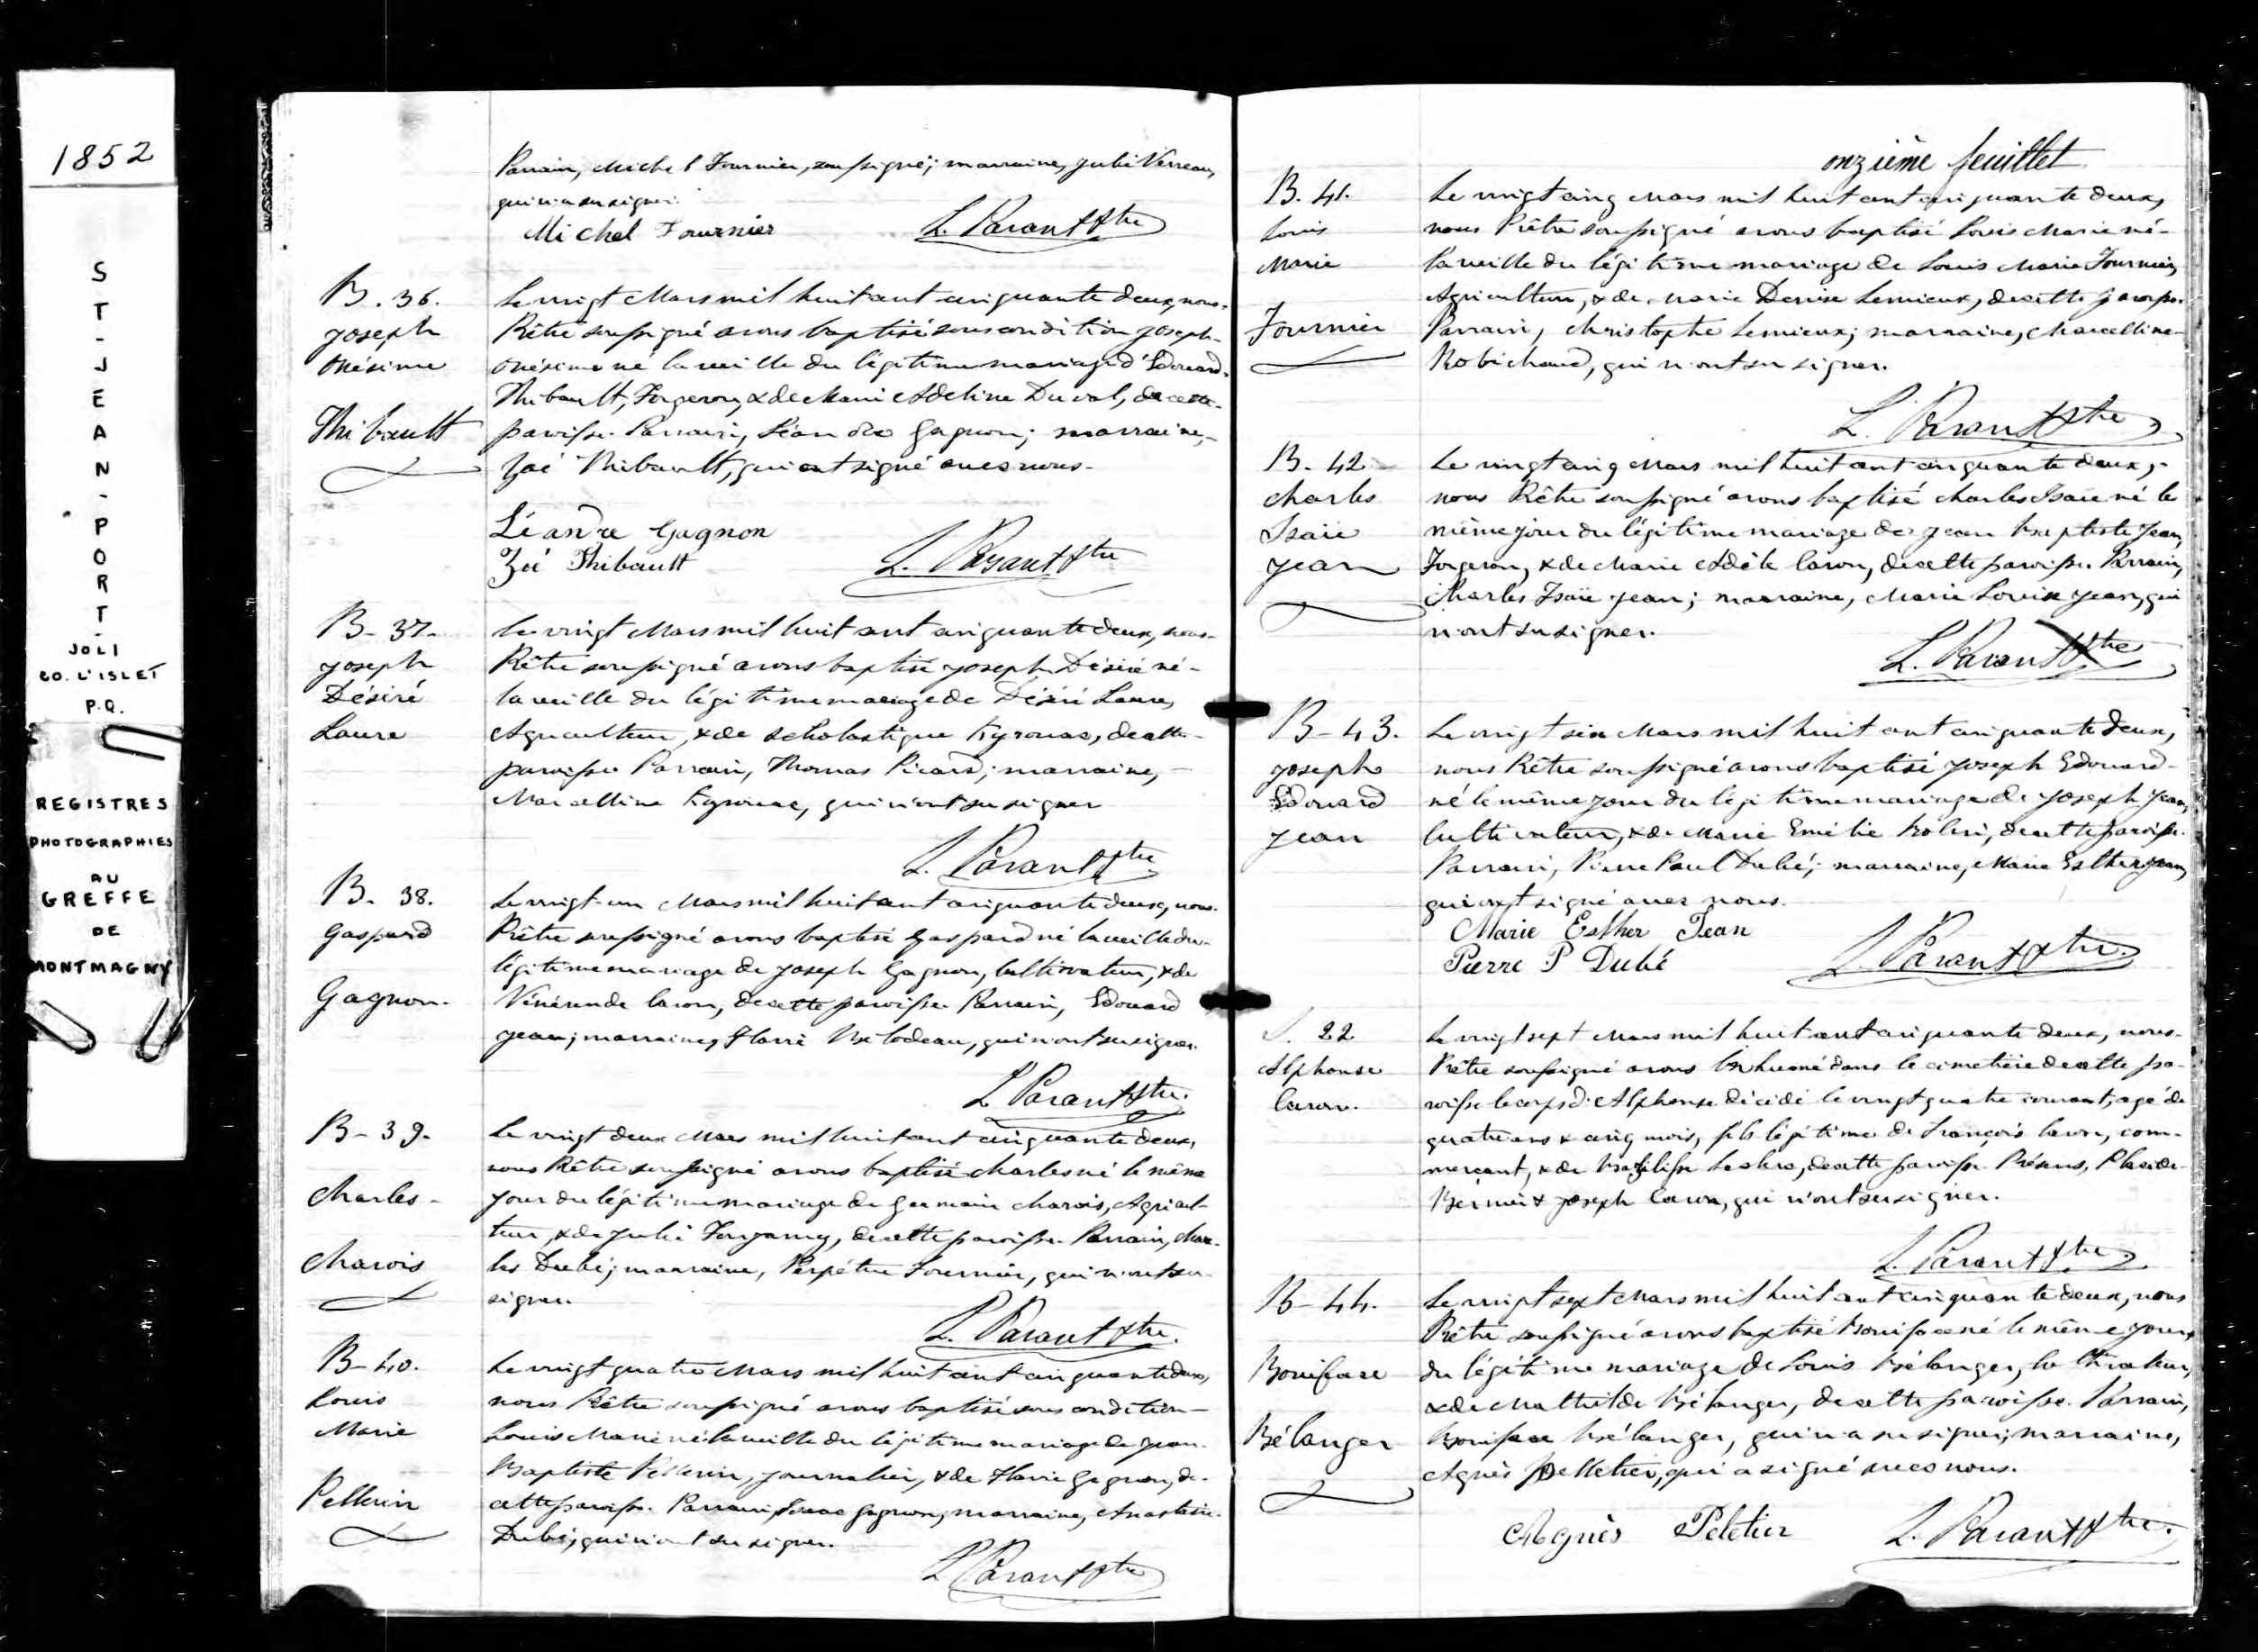 1852
ST-JEAN-PORT-
JOLI
CO. L'ISLET
P.Q.
REGISTRES
PHOTOGRAPHIES
AU
GREFFE
DE
MONTMAGNY
Parrain, Michel Fournier, soussigné; marraine, Julie Verreau,
qui n'a su signer.
Michel Fournier L. Parant Ptre
B. 36.
Joseph
Onésime
Thibault
Le vingt Mars mil huit cent cinquante deux, nous
Prêtre soussigné avons baptisé sous condition Joseph
Onésime né la veille du légitime mariage d'Edouard
Thibault, Forgeron, & de Marie Adeline Duval, de cette
paroisse. Parrain, Léandre Gagnon; marraine,
Zoé Thibault, qui ont signé avec nous.
Léandre Gagnon
Zoé Thibault L. Parant Ptre
B-37-
Joseph
Désiré
Laure
Le vingt Mars mil huit cent cinquante deux, nous
Prêtre soussigné avons baptisé Joseph Désiré né
la veille du légitime mariage de Désiré Laure,
Agriculteur, & de Scholastique Kyrouac, de cette
paroisse. Parrain, Thomas Picard; marraine,
Marcelline Kyrouac, qui n'ont su signer
L. Parant Ptre
B. 38.
Gaspard
Gagnon.
Le vingt-un Mars mil huit cent cinquante deux, nous
Prêtre soussigné avons baptisé Gaspard né la veille du
légitime mariage de Joseph Gagnon, Cultivateur, & de
Vénérande Caron, de cette paroisse. Parrain, Edouard
Jean; marraine, Flavie Bilodeau, qui n'ont su signer.
L Parant Ptre.
B-39-
Charles-
Charois
Le vingt deux Mars mil huit cent cinquante deux,
nous Prêtre soussigné avons baptisé Charles né le même
jour du légitime mariage de Germain Charois, Agricul-
teur, & de Julie, de cette paroisse. Parrain, Char-
les Dubé; marraine, Perpétue Fournier, qui n'ont su
signer.
L. Parant Ptre.
B-40.
Louis
Marie
Pellerin
Le vingt quatre Mars mil huit cent cinquante deux,
nous Prêtre soussigné avons baptisé sous condition
Louis Marie né la veille du légitime mariage de Jean
Baptiste Pellerin, journalier, & de Flavie Gagnon, de
cette paroisse. Parrain, Isaac Gagnon; marraine, Anastasie
Dubé, qui n'ont su signer.
L Parant Ptre
onzième feuillet
B. 41.
Louis
Marie
Fournier
Le vingt cinq Mars mil huit cent cinquante deux,
nous Prêtre soussigné avons baptisé Louis Marie né
la veille du légitime mariage de Louis Marie Fournier,
Agriculteur, & de Marie Denise Lemieux, de cette paroisse.
Parrain, Christophe Lemieux; marraine, Marcelline
Robichaud, qui n'ont su signer.
L. Parant Ptre
B-42
Charles
Isaïe
Jean
Le vingt cinq Mars mil huit cent cinquante deux,
nous Prêtre soussigné avons baptisé Charles Isaïe né le
même jour du légitime mariage de Jean Baptiste Jean,
Forgeron, & de Marie Adèle Caron, de cette paroisse. Parrain,
Charles Isaïe Jean; marraine, Marie Louise Jean, qui
n'ont su signer.
L. Parant Ptre
B-43.
Joseph
Edouard
Jean
Le vingt six Mars mil huit cent cinquante deux,
nous Prêtre soussigné avons baptisé Joseph Edouard
né le même jour du légitime mariage de Joseph Jean,
Cultivateur, & de Marie Emélie, de cette paroisse.
Parrain, Pierre Paul Dubé; marraine, Marie Esther Jean,
qui ont signé avec nous.
Marie Esther Jean
Pierre P Dubé L. Parant Ptre.
S. 22
Alphonse
Caron.
Le vingt sept Mars mil huit cent cinquante deux, nous
Prêtre soussigné avons inhumé dans le cimetière de cette pa-
roisse le corps d'Alphonse décédé le vingt quatre courant, agé de
quatre ans & cinq mois, fils légitime de François Caron, com-
merçant, & de, de cette paroisse. Présens, Placide
Bernier & Joseph Caron, qui n'ont su signer.
L. Parant Ptre
B-44.
Boniface
Bélanger
Le vingt sept Mars mil huit cent cinquante deux, nous
Prêtre soussigné avons baptisé Boniface né le même jour
du légitime mariage de Louis Bélanger, Cultivateur,
& de Mathilde Bélanger, de cette paroisse. Parrain,
Boniface Bélanger, qui n'a su signer; marraine,
Agnès Pelletier, qui a signé avec nous.
Agnès Peletier L. Parant Ptre.